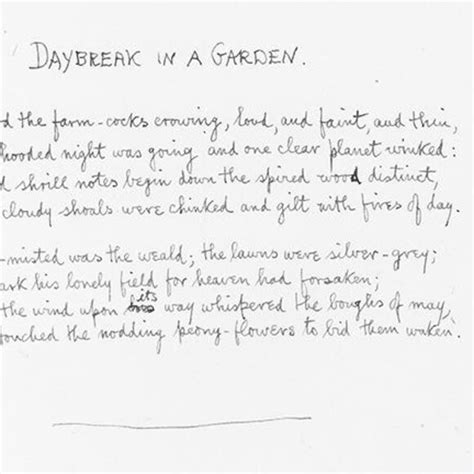 DAYBREAK IN A GARDEN.
d the farm-cocks crowing, loud, and faint, and thin,
hooded night was going and one clear planet winked:
d shrill notes begin down the spired wood distinct,
cloudy shoals were chinked and gilt with fires of day.
-misted was the weald; the lawns were silver-grey;
ark his lonely field for heaven had forsaken;
the wind upon its way whispered the boughs of may,
touched the nodding peony-flowers to bid them waken.